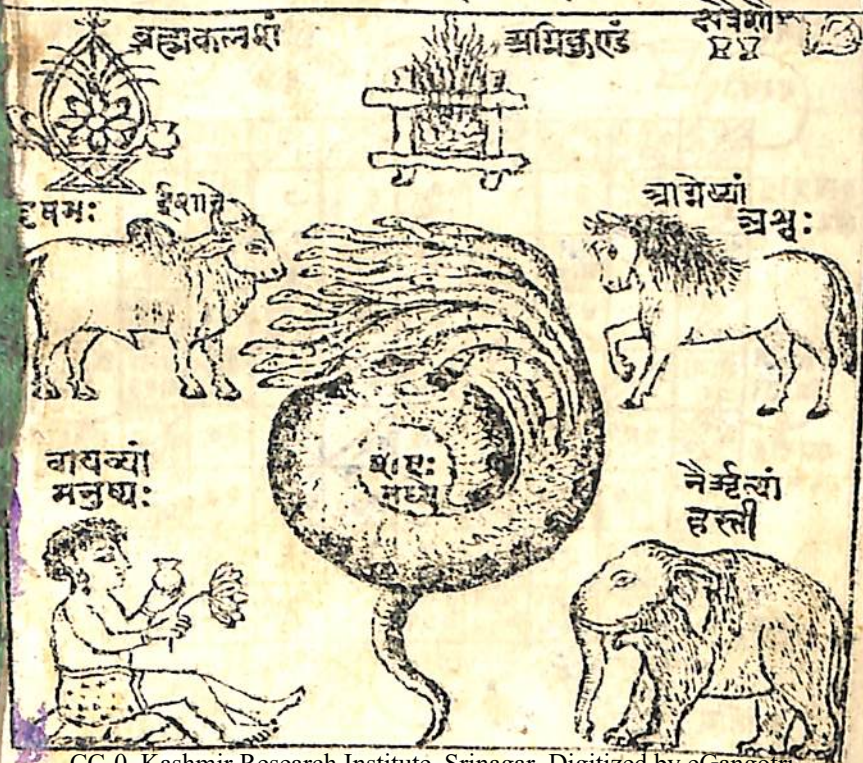 ब्रह्मकलशं
अग्निकुण्डं
वृषभः
ईशाने
आग्नेय्यां
अश्वः
मध्य
वायव्यां
मनुष्यः
नैर्ऋत्यां
हस्ती
CC-0. Kashmir Research Institute, Srinagar. Digitized by eGangotri